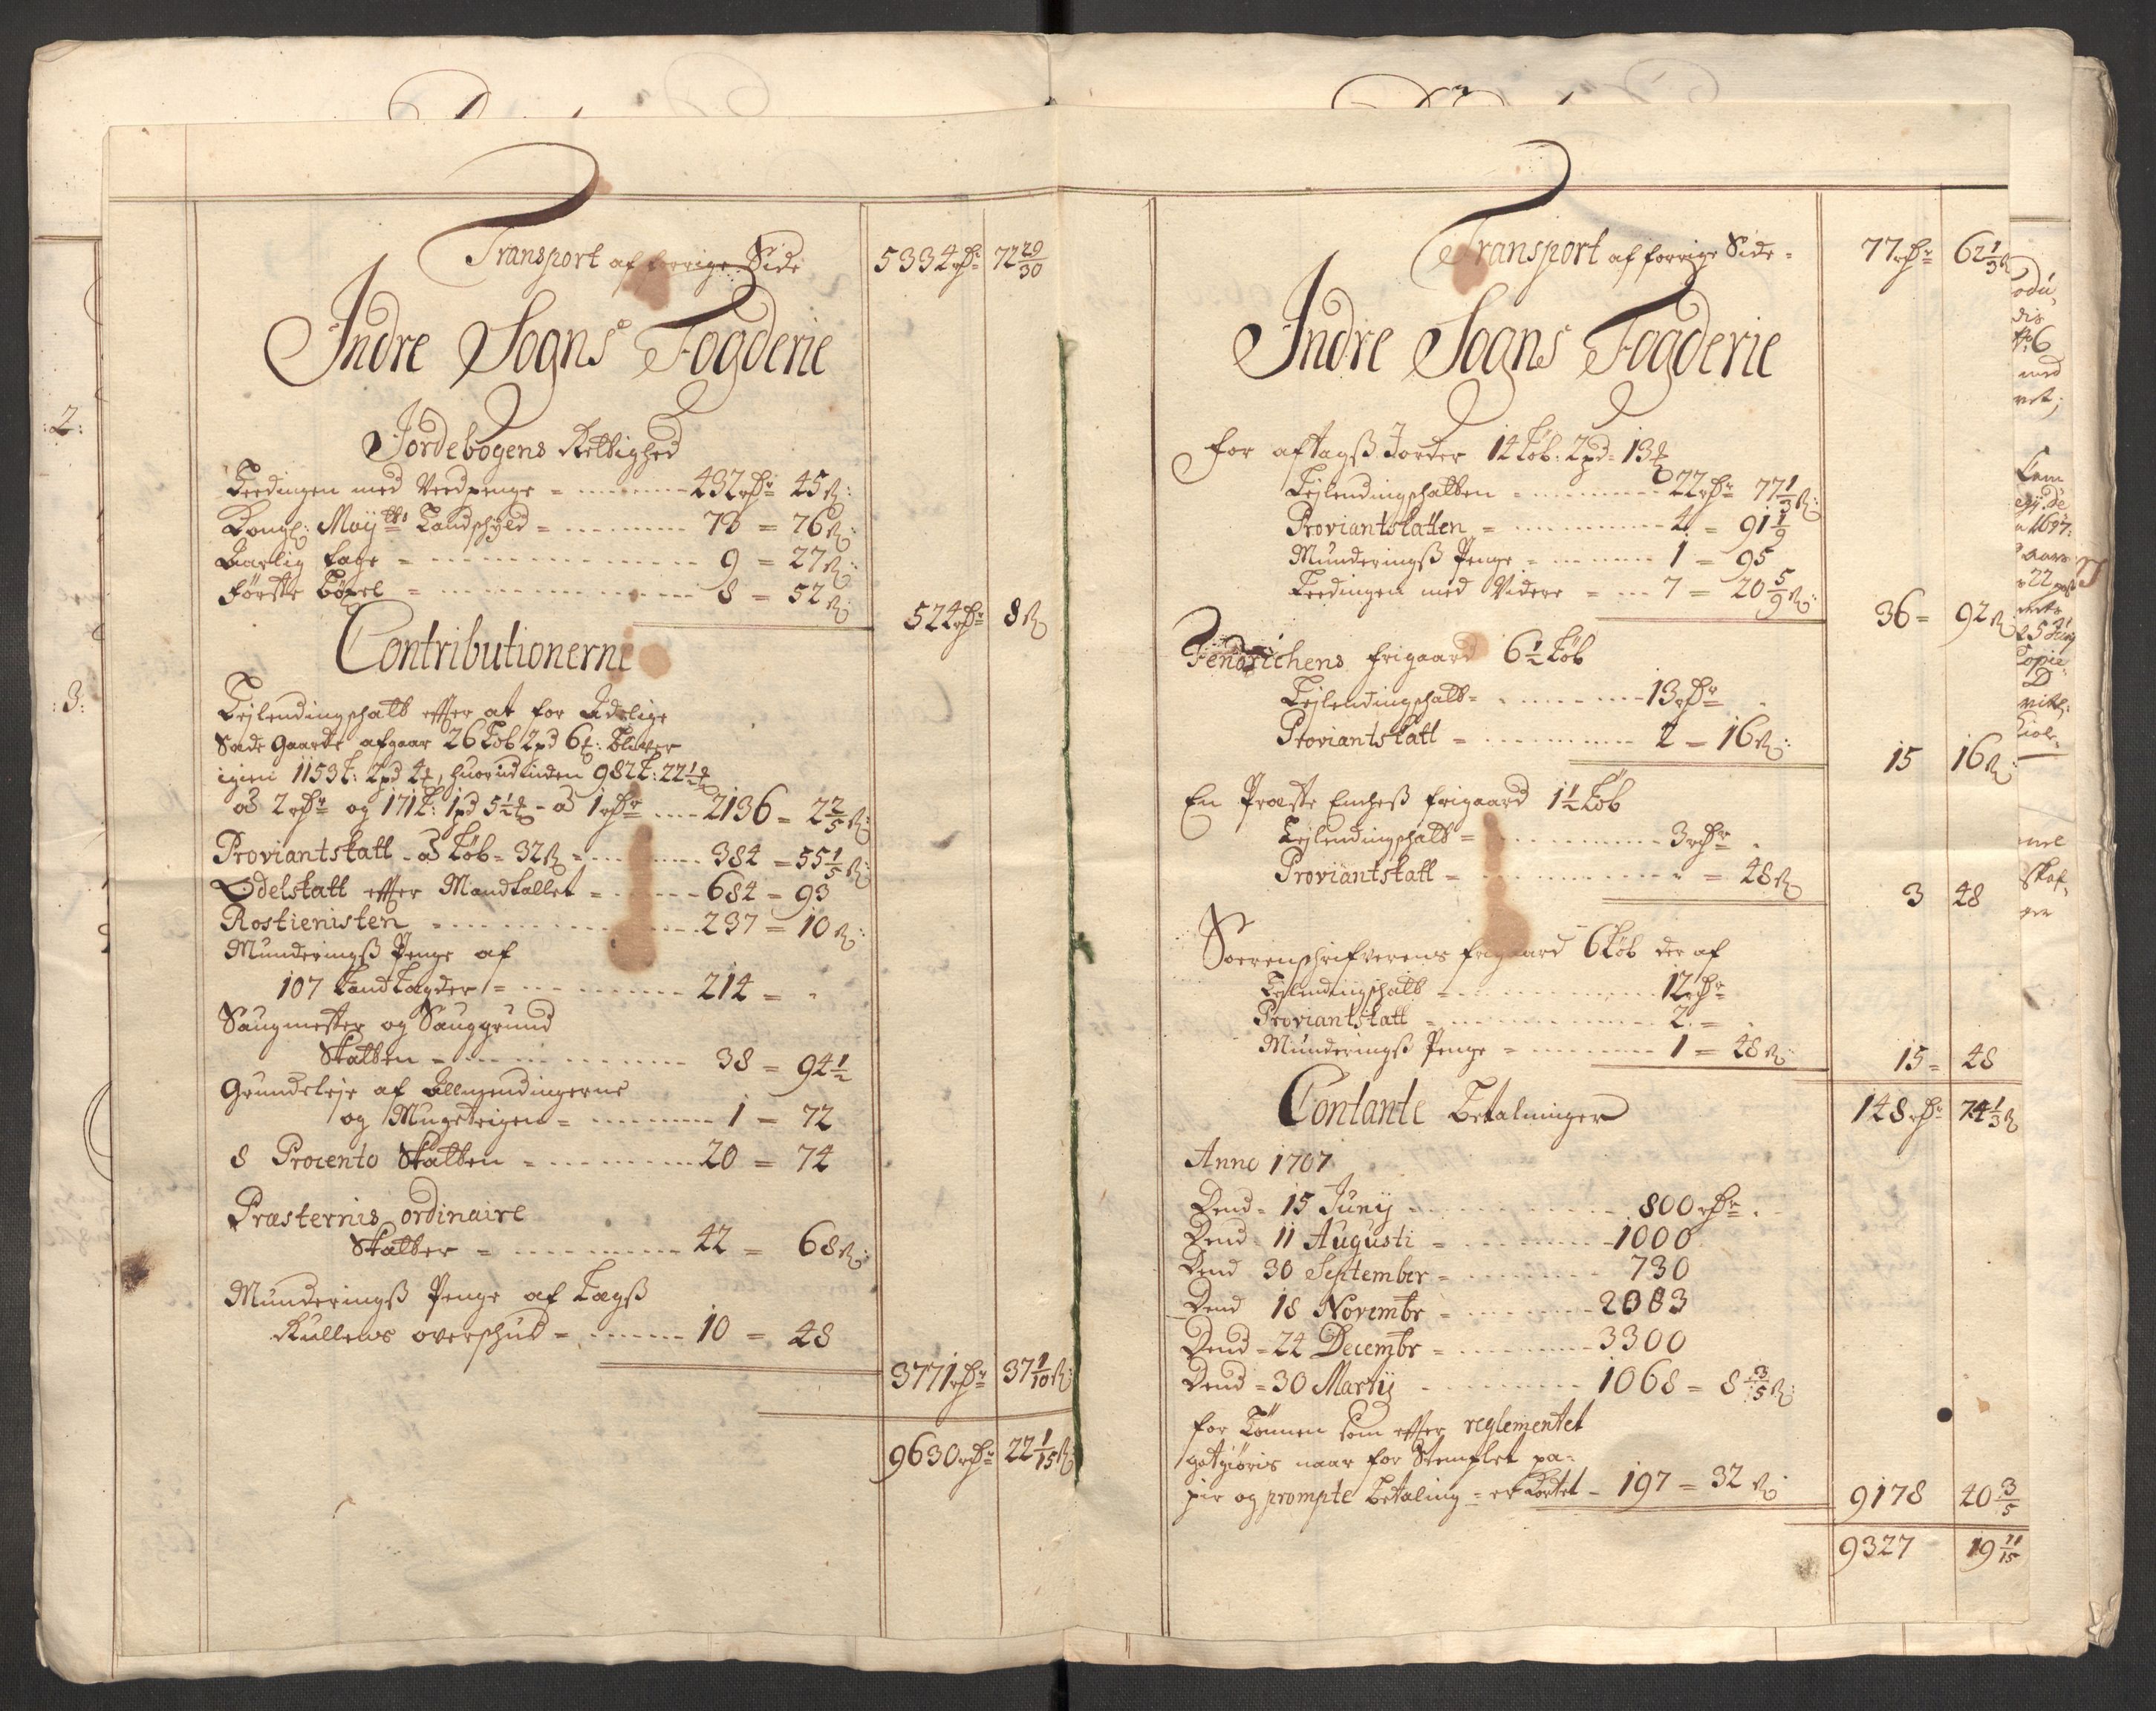 Transport af forrige Side 5334 rdr 72 29/30
Indre Sogns Fogderie
Jordebogens Rettighed
Leedingen med Veedpenge = 432 rdr 45 s:
Kongl: Mayts Landschyld = 73 = 76 s:
Aarlig Tage = 9 = 27 s:
Første Bøxel = 8 = 52 s: 524 rdr 8 s
Contributionerne
Lejlendingschatt effter at for Adelige
Sæde Gaarde afgaar 26 Løb 2 pd 6 : bliver
igien 1153 L: 2 pd 4 , huorudinden 982 L: 22 1/2
à 2 rdr og 171 L: 1 pd 5 1/2 - à 1 rdr 2136 = 2 2/5 s:
Proviantskatt - à Løb = 32 s = 384 = 55 1/5 s:
Odelskatt effter Mandtallet = 684 = 93
Rostienisten 237 = 10 s:
Munderingß Penge af
107 Land Lægder = 214 = -
Saugmester og Sauggrund
Skatten = 38 = 94 1/2
Grundeleje af Allmendingerne
og = 1 = 72
8 Procento Skatten = 20 = 74
Præsternis ordinaire
Skatter = 42 = 68 s:
Munderingß Penge af Lægß
Rullens overschud = 10 = 48
3771 rdr 37 1/10 s:
9630 rdr 22 1/15 s
Transport af forrige Side = 77 rdr 62 1/3 s
Indre Sogns Fogderie
for aftagß Jorder 14 Løb: 2 pd = 13
Lejlendingschatten = 22 rdr 77 1/3 s:
Proviantskatten = 4 = 91 1/9
Munderingß Penge = 1 = 95
Leedingen med Videre = 7 = 20 5/9 s: 36 = 92 s:
Fendrichens frigaard 6 1/2 Løb
Lejlendingschatt = 13 rdr
Proviantskatt = 2 = 16 s: 15 16 s:
En Præste Enches frigaard 1 1/2 Løb
Lejlendingschatt = 3 rdr
Proviantskatt = = 48 s 3 48
Soerenschrifverens frigaard 6 Løb der af
Lejlendingschatt = 12 rdr
Proviantskatt = 2 =
Munderingß Penge = 1 = 48 s: 15 = 48
Contante Betalninger 148 rdr 74 1/3 s
Anno 1707
Dend = 15 Junij 800 rdr
Dend = 11 Augusti = 1000
Dend 30 September = 730
Dend 18 Novembr = 2083
Dend = 24 Decembr = 3300
Dend = 30 Martij 1068 = 8 3/5 s:
for Tønnen som effter reglementet
gotgiøris naar for Stemplet pa=
pir og prompte Betaling = er Kortet = 197 = 32 s: 9178 40 3/5
9327 19 11/15
:2:
:3: